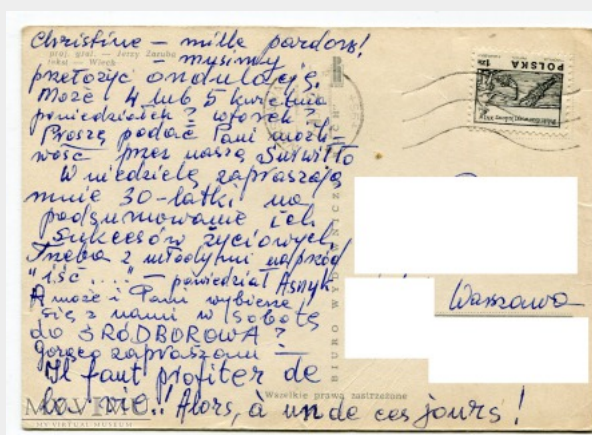 Christine – mille pardons!
proj. graf. — Jerzy Zaruba
tekst — Wiech
– musimy
przełożyć ondulację.
Może 4 lub 5 kwietnia
poniedziałek? wtorek?
Proszę podać Pani możli
wość przez naszą Surwiłło
W niedzielę zapraszają
mnie 30-latki na
podsumowanie ich
sukcesów życiowych.
Trzeba z młodymi naprzód
"iść..." – powiedział Asnyk
A może i Pani wybierze
się z nami w sobotę
do ŚRÓDBOROWA?
Gorąco zapraszam –
Il faut profiter de
la vie!! Alors, à un de ces jours!
BIURO WYDAWNICZE
Wszelkie prawa zastrzeżone
POLSKA
Warszawa
MYVIMU
MY VIRTUAL MUSEUM